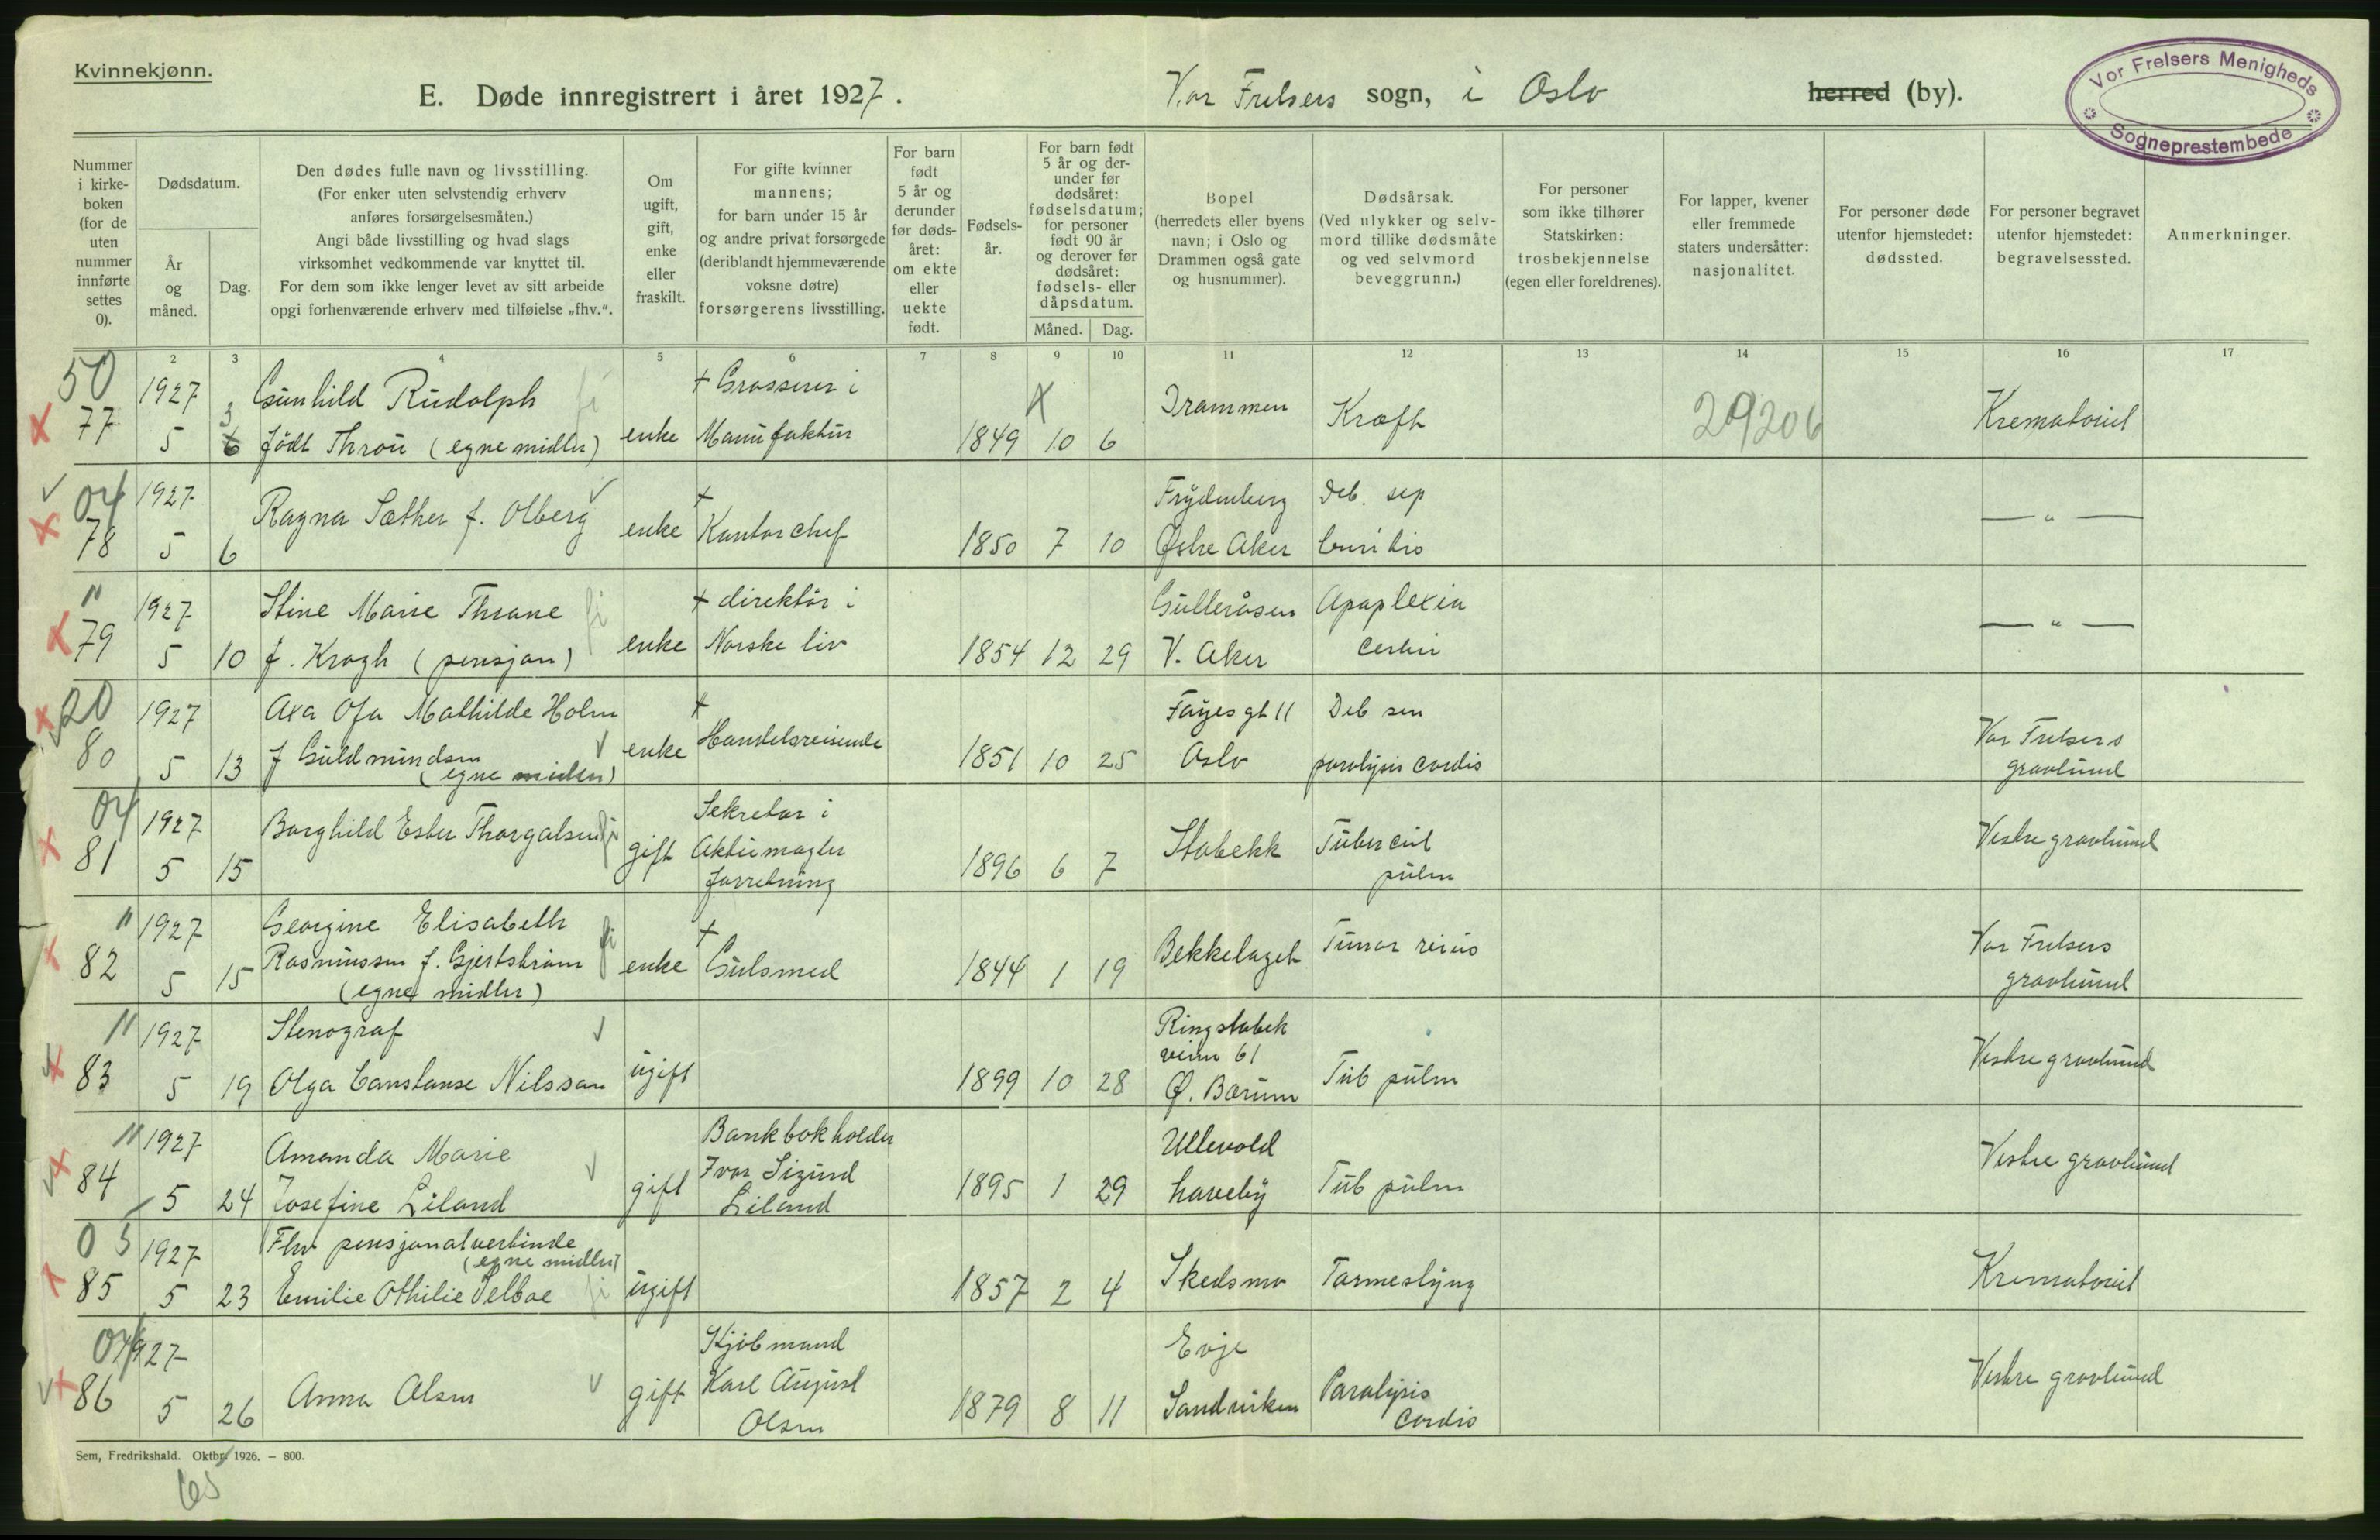 Kvinnekjønn.
E. Døde innregistrert i året 1927.
Vor Frelsers sogn, i Oslo herred (by).
Vor Frelsers Menigheds
Sogneprestembede
Nummer i kirke- boken (for de uten nummer innførte settes 0).
Dødsdatum.
År og måned.
Dag.
Den dødes fulle navn og livsstilling.
(For enker uten selvstendig erhverv
anføres forsørgelsesmåten.)
Angi både livsstilling og hvad slags
virksomhet vedkommende var knyttet til.
For dem som ikke lenger levet av sitt arbeide
opgi forhenværende erhverv med tilføielse „fhv.“.
Om ugift, gift, enke eller fraskilt.
For gifte kvinner
mannens;
for barn under 15 år
og andre privat forsørgede
(deriblandt hjemmeværende
voksne døtre)
forsørgerens livsstilling.
For barn født 5 år og derunder før døds- året: om ekte eller uekte født.
Fødsels- år.
For barn født
5 år og der-
under før
dødsåret:
fødselsdatum;
for personer
født 90 år
og derover før
dødsåret:
fødsels- eller
dåpsdatum.
Måned. Dag.
Bopel
(herredets eller byens
navn; i Oslo og
Drammen også gate
og husnummer).
Dødsårsak.
(Ved ulykker og selv-
mord tillike dødsmåte
og ved selvmord
beveggrunn.)
For personer
som ikke tilhører
Statskirken:
trosbekjennelse
(egen eller foreldrenes).
For lapper, kvener
eller fremmede
staters undersåtter:
nasjonalitet.
For personer døde
utenfor hjemstedet:
dødssted.
For personer begravet
utenfor hjemstedet:
begravelsessted.
Anmerkninger.
2 3 4 5 6 7 8 9 10 11 12 13 14 15 16 17
50 1927 3 Gunhild Rudolph fi + Grosserer i x Drammen Kræft 29206 Krematoriet
x 77 5 6 født Throu (egne midler) enke Manufaktur 1849 10 6
04 1927 Ragna Sæther f. Olberg + Frydenberg Deb. sep —„—
x 78 5 6 enke Kontorchef 1850 7 10 Østre Aker
" 1927 Stine Marie Thrane fi + direktør i Gulleråsen Apoplexia —„—
x 79 5 10 f. Krogh (pensjon) enke Norske liv 1854 12 29 V. Aker cerebri
20 1927 Axa Ofa Mathilde Holm + Fayesgt 11 Deb sen Vor Frelsers
x 80 5 13 f Guldmundsen enke Handelsreisende 1851 10 25 Oslo paralysis cordis gravlund
(egne midler)
04 1927 Borghild Ester Thorgalsen fi Sekretær i
x 81 5 15 gift Aktiemægler 1896 6 7 Stabekk Tubercul Vestre gravlund
forretning pulm
" 1927 Georgine Elisabeth + Vor Frelsers
x 82 5 15 Rasmussen f. Gjertstrøm fi enke Gulsmed 1844 1 19 Bekkelaget Tumor gravlund
(egne midler)
" 1927 Stenograf Ringstabek
x 83 5 19 Olga Constanse Nilsson ugift 1899 10 28 veien 61 Tub pulm Vestre gravlund
Ø. Bærum
" 1927 Amanda Marie Bankbokholder Ullevold Vestre gravlund
x 84 5 24 Josefine Liland gift Ivar Sigurd 1895 1 29 haveby Tub pulm
Liland
05 1927 Fhv pensjonatvertinde
(egne midler)
x 85 5 23 Emilie Othilie Selboe fi ugift 1857 2 4 Skedsmo Tarmeslyng Krematoriet
04 1927 Kjøbmand Evje
x 86 5 26 Anna Olsen gift Karl August 1879 8 11 Sandviken Paralysis Vestre gravlund
Olsen cordis
Sem, Fredrikshald. Oktbr. 1926. – 800.
65